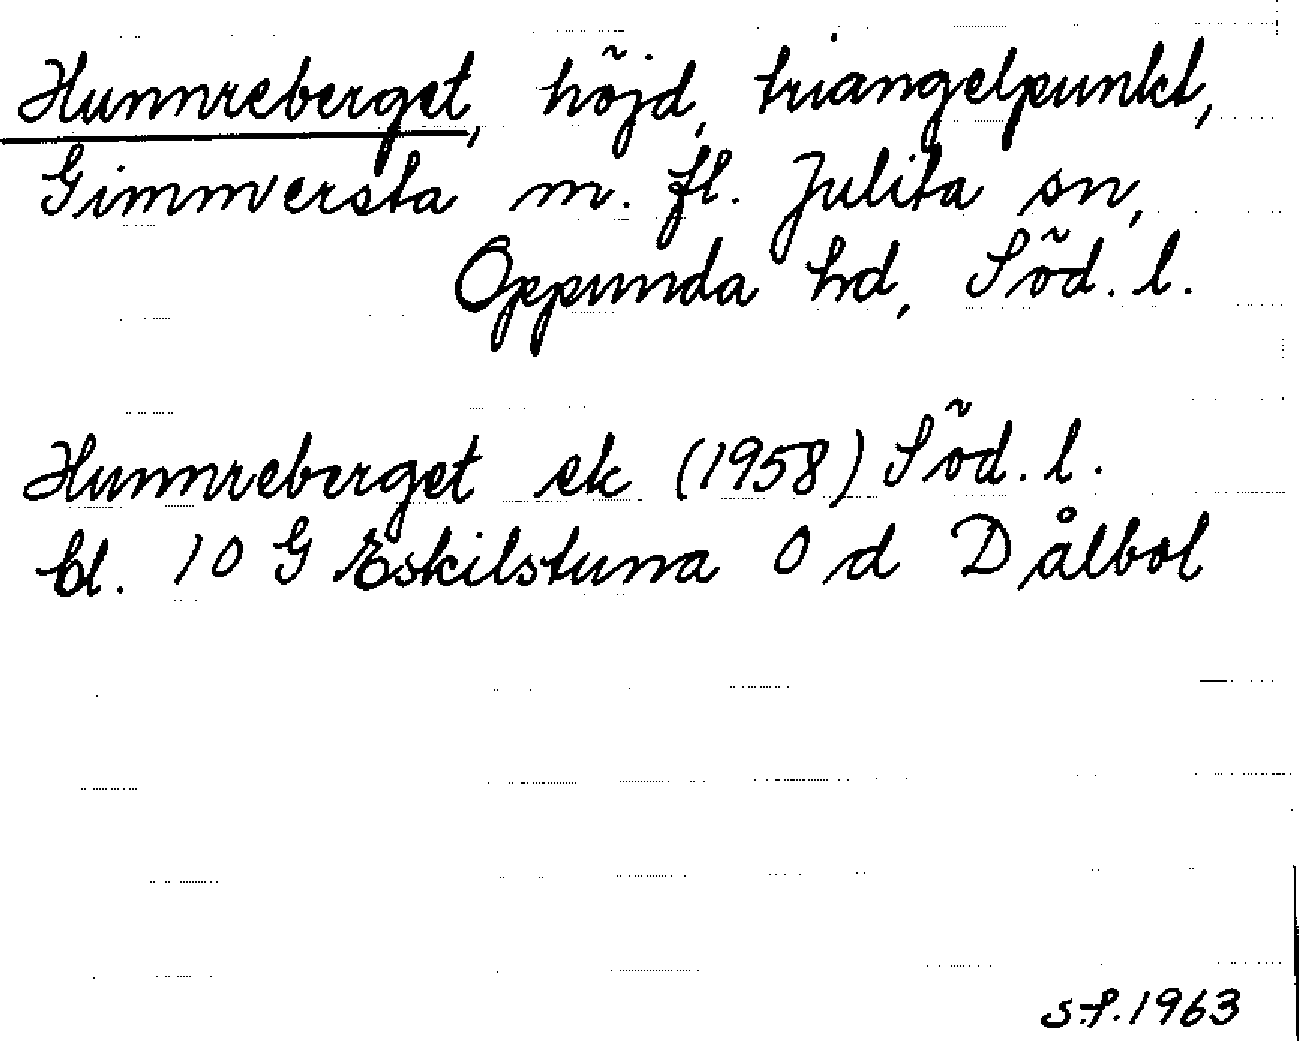 Hunnreberget, höjd, triangelpunkt,
Gimmersta m. fl. Julita sn,
Oppunda hd, Söd. l.
Hunnreberget ek (1958) Söd. l.
bl. 10 G Eskilstuna 0 d Dålbol
S.F. 1963